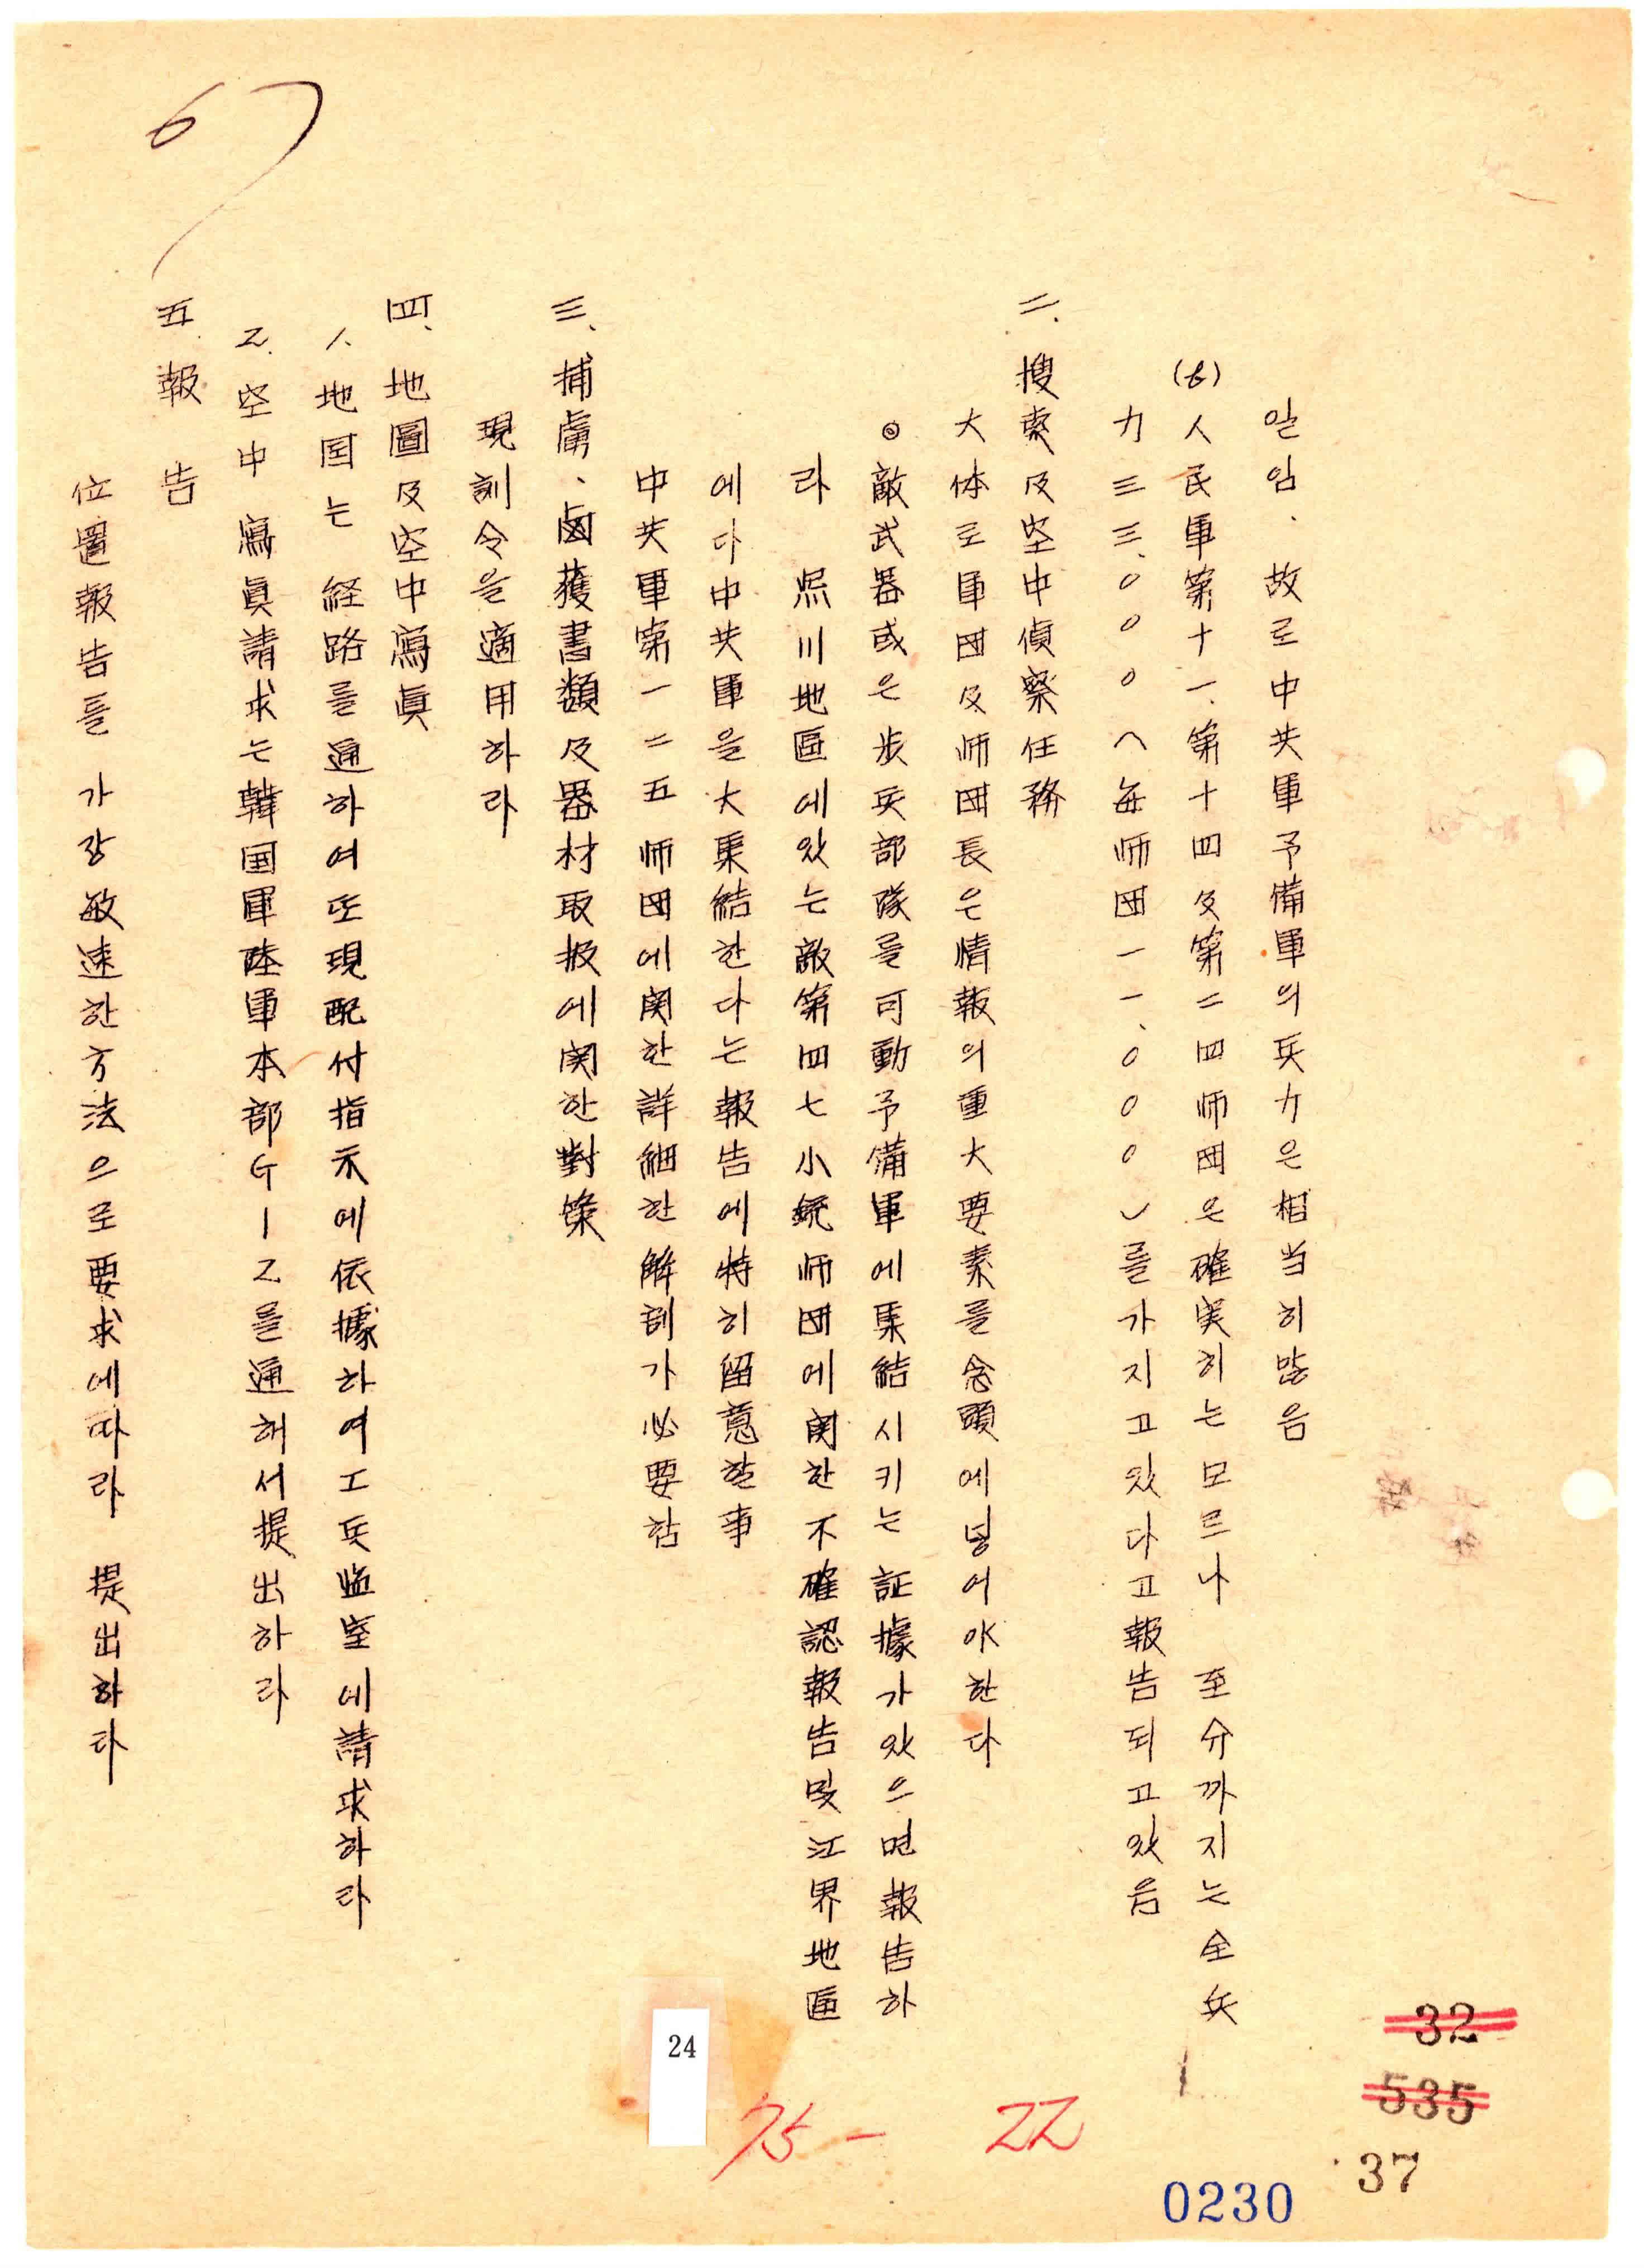 67
일임、故로中共軍予備軍의兵力은相当히많음
(b)人民軍第十一、第十四及第二四师団은確実히는모르나 至今까지는全兵
力三三、〇〇〇(每师団一一、〇〇〇)를가지고있다고報告되고있음
二、搜索及空中偵察任務
大体로軍団及师団長은情報의重大要素를念頭에넣어야한다
◎敵武器或은步兵部隊를可動予備軍에集結시키는証據가있으면報告하
라 熙川地區에있는敵第四七小銃师団에関한不確認報告및江界地區
에다中共軍을大集結한다는報告에特히留意할事
中共軍第一二五师団에関한詳細한解剖가必要함
三、捕虜、鹵獲書類及器材取扱에関한對策
現訓令을適用하라
四、地圖及空中寫眞
1.地国는 経路를通하여또現配付指示에依據하여工兵監室에請求하라
2.空中寫眞請求는韓国軍陸軍本部G-2을通해서提出하라
五、報告
位置報告를 가장敏速한方法으로要求에따라 提出하라
24
75- 22
32
535
37
0230